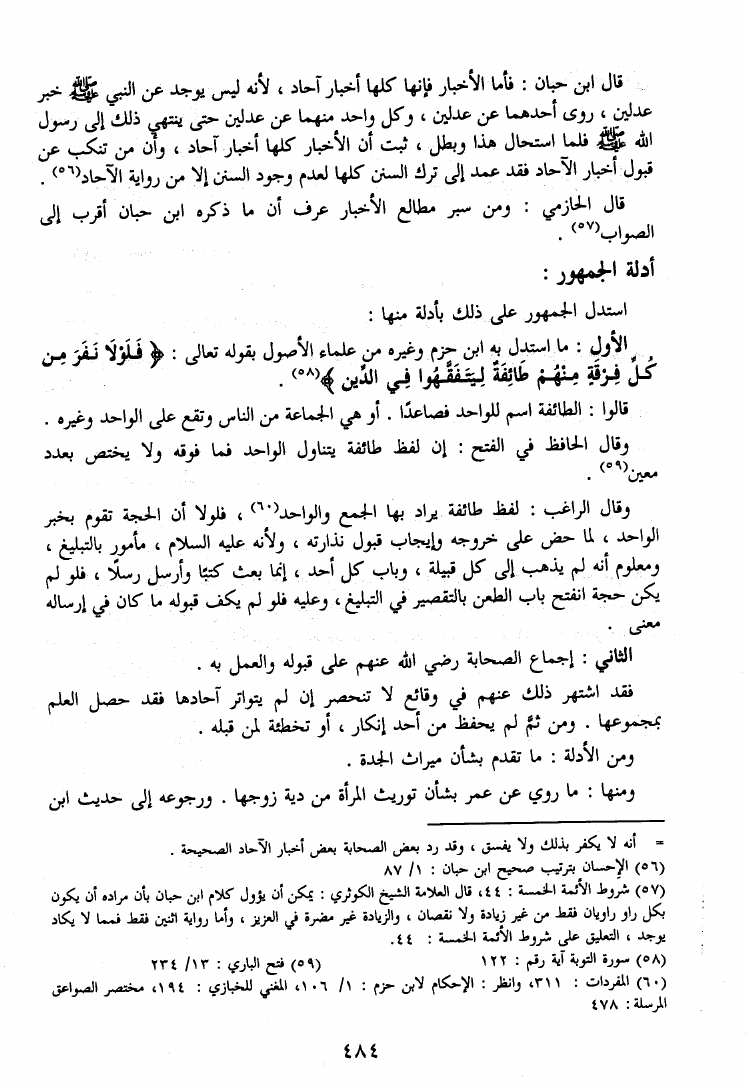 قال ابن حبان : فأما الأخبار فإنها كلها أخبار آحاد ، لأنه ليس يوجد عن النبي ﷺ خبر
عدلين ، روى أحدهما عن عدلين ، وكل واحد منهما عن عدلين حتى ينتهي ذلك إلى رسول
الله ﷺ فلما استحال هذا وبطل ، ثبت أن الأخبار كلها أخبار آحاد ، وأن من تنكب عن
قبول أخبار الآحاد فقد عمد إلى ترك السنن كلها لعدم وجود السنن إلا من رواية الآحاد(٥٦) .
قال الحازمي : ومن سبر مطالع الأخبار عرف أن ما ذكره ابن حبان أقرب إلى
الصواب(٥٧) .
أدلة الجمهور :
استدل الجمهور على ذلك بأدلة منها :
الأول : ما استدل به ابن حزم وغيره من علماء الأصول بقوله تعالى : ﴿ فَلَوْلَا نَفَرَ مِن
كُلِّ فِرْقَةٍ مِنْهُمْ طَائِفَةٌ لِيَتَفَقَّهُوا فِي الدِّين ﴾(٥٨) .
قالوا : الطائفة اسم للواحد فصاعدًا . أو هي الجماعة من الناس وتقع على الواحد وغيره .
وقال الحافظ في الفتح : إن لفظ طائفة يتناول الواحد فما فوقه ولا يختص بعدد
معين(٥٩) .
وقال الراغب : لفظ طائفة يراد بها الجمع والواحد(٦٠) ، فلولا أن الحجة تقوم بخبر
الواحد ، لما حض على خروجه وإيجاب قبول نذارته ، ولأنه عليه السلام ، مأمور بالتبليغ ،
ومعلوم أنه لم يذهب إلى كل قبيلة ، وباب كل أحد ، إنما بعث كتبًا وأرسل رسلًا ، فلو لم
يكن حجة انفتح باب الطعن بالتقصير في التبليغ، وعليه فلو لم يكف قبوله ما كان في إرساله
معنى .
الثاني : إجماع الصحابة رضي الله عنهم على قبوله والعمل به .
فقد اشتهر ذلك عنهم في وقائع لا تنحصر إن لم يتواتر آحادها فقد حصل العلم
بمجموعها . ومن ثمَّ لم يحفظ من أحد إنكار ، أو تخطئة لمن قبله .
ومن الأدلة : ما تقدم بشأن ميراث الجدة .
ومنها : ما روي عن عمر بشأن توريث المرأة من دية زوجها . ورجوعه إلى حديث ابن
= أنه لا يكفر بذلك ولا يفسق ، وقد رد بعض الصحابة بعض أخبار الآحاد الصحيحة .
(٥٦) الإحسان بترتيب صحيح ابن حبان : ١/ ٨٧
(٥٧) شروط الأئمة الخمسة : ٤٤، قال العلامة الشيخ الكوثري : يمكن أن يؤول كلام ابن حبان بأن مراده أن يكون
بكل راو راويان فقط من غير زيادة ولا نقصان ، والزيادة غير مضرة في العزيز ، وأما رواية اثنين فقط فمما لا يكاد
يوجد ، التعليق على شروط الأئمة الخمسة : ٤٤.
(٥٨) سورة التوبة آية رقم : ١٢٢ (٥٩) فتح الباري : ١٣/ ٢٣٤
(٦٠) المفردات : ٣١١، وانظر : الإحكام لابن حزم : ١/ ١٠٦، المغني للخبازي : ١٩٤، مختصر الصواعق
المرسلة : ٤٧٨
٤٨٤